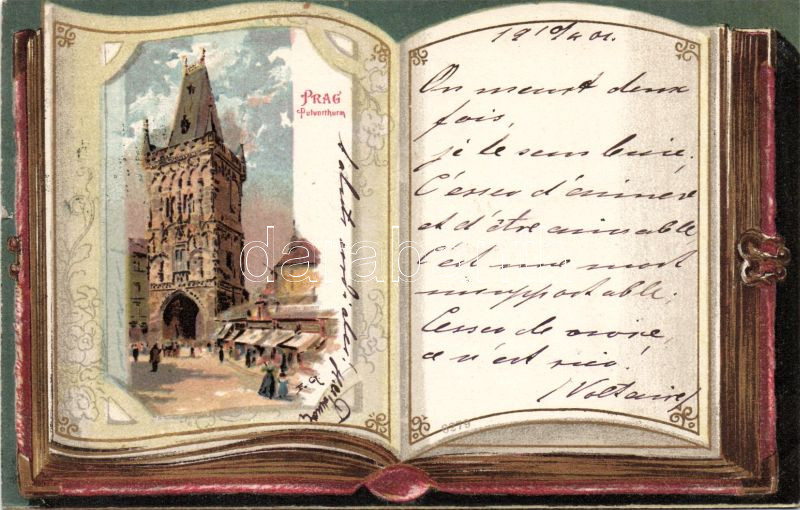 PRAG
Pulverthurm
19 10/4 01.
On meurt deux
fois,
je le sens bien.
Cesser d'aimer
et d'être aimable
C'est une mort
insupportable;
Cesser de vivre,
ce n'est rien!
(Voltaire)
darabanth
6279